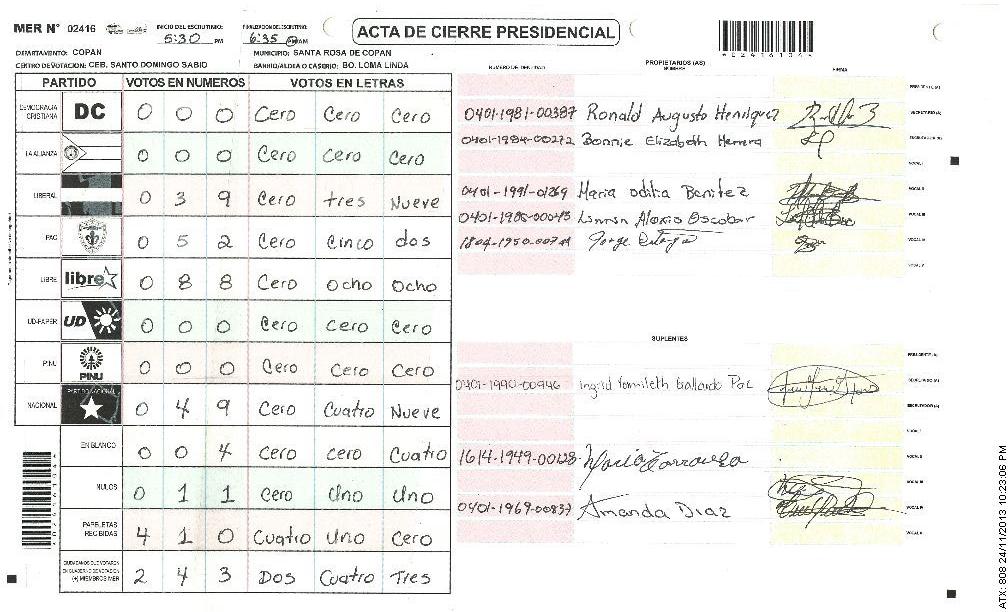 MER N° 02416 INICIO DEL ESCRUTINIO: 5:30 PM FINALIZACION DEL ESCRUTINIO: 6:35 PM AM ACTA DE CIERRE PRESIDENCIAL
DEPARTAMENTO: COPAN MUNICIPIO: SANTA ROSA DE COPAN
CENTRO DE VOTACION: CEB. SANTO DOMINGO SABIO BARRIO/ALDEA O CASERIO: BO. LOMA LINDA
NUMERO DE IDENTIDAD PROPIETARIOS (AS) NOMBRE FIRMA
PARTIDO VOTOS EN NUMEROS VOTOS EN LETRAS
PRESIDENTE (A)
DEMOCRACIA CRISTIANA DC 0 0 0 Cero Cero Cero
0401-1981-00387 Ronald Augusto Henriquez SECRETARIO (A)
0401-1984-00272 Bonnie Elizabeth Herrera ESCRUTADOR (A)
LA ALIANZA 0 0 0 Cero Cero Cero
VOCAL I
LIBERAL 0 3 9 Cero tres Nueve
0401-1991-01269 Maria Benitez VOCAL II
Alexis Escobar VOCAL III
PAC 0 5 2 Cero Cinco dos
Jorge VOCAL IV
VOCAL V
LIBRE libre 0 8 8 Cero Ocho Ocho
UD-FAPER UD 0 0 0 Cero Cero Cero
SUPLENTES
PINU PINU 0 0 0 Cero Cero Cero
PRESIDENTE (A)
0401-1990-00946 Ingrid Yamileth Gallardo Paz SECRETARIO (A)
NACIONAL PARTIDO NACIONAL 0 4 9 Cero Cuatro Nueve
ESCRUTADOR (A)
VOCAL I
EN BLANCO 0 0 4 Cero cero Cuatro
1614-1949-00128 Maria Carranza VOCAL II
NULOS 0 1 1 Cero Uno Uno
VOCAL III
0401-1969-00837 Amanda Diaz VOCAL IV
PAPELETAS RECIBIDAS 4 1 0 Cuatro Uno Cero
VOCAL V
CIUDADANOS QUE VOTARON EN CUADERNO DE VOTACION (+) MIEMBROS MER 2 4 3 Dos Cuatro Tres
ATX: 808 24/11/2013 10:23:06 PM